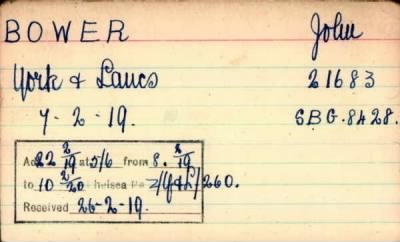 BOWER John
York & Lancs 21683
7-2-19. SBG.8428.
22 2/19 at 5/6 from 8. 2/19
to 10 2/20 helsea 2/Y&L/260.
Received 26-2-19.